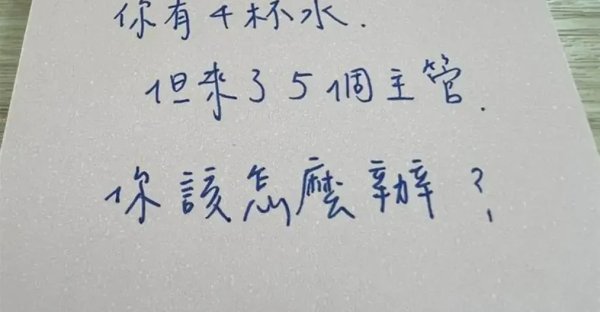 你有4杯水.
但來了5個主管.
你該怎麼辦?